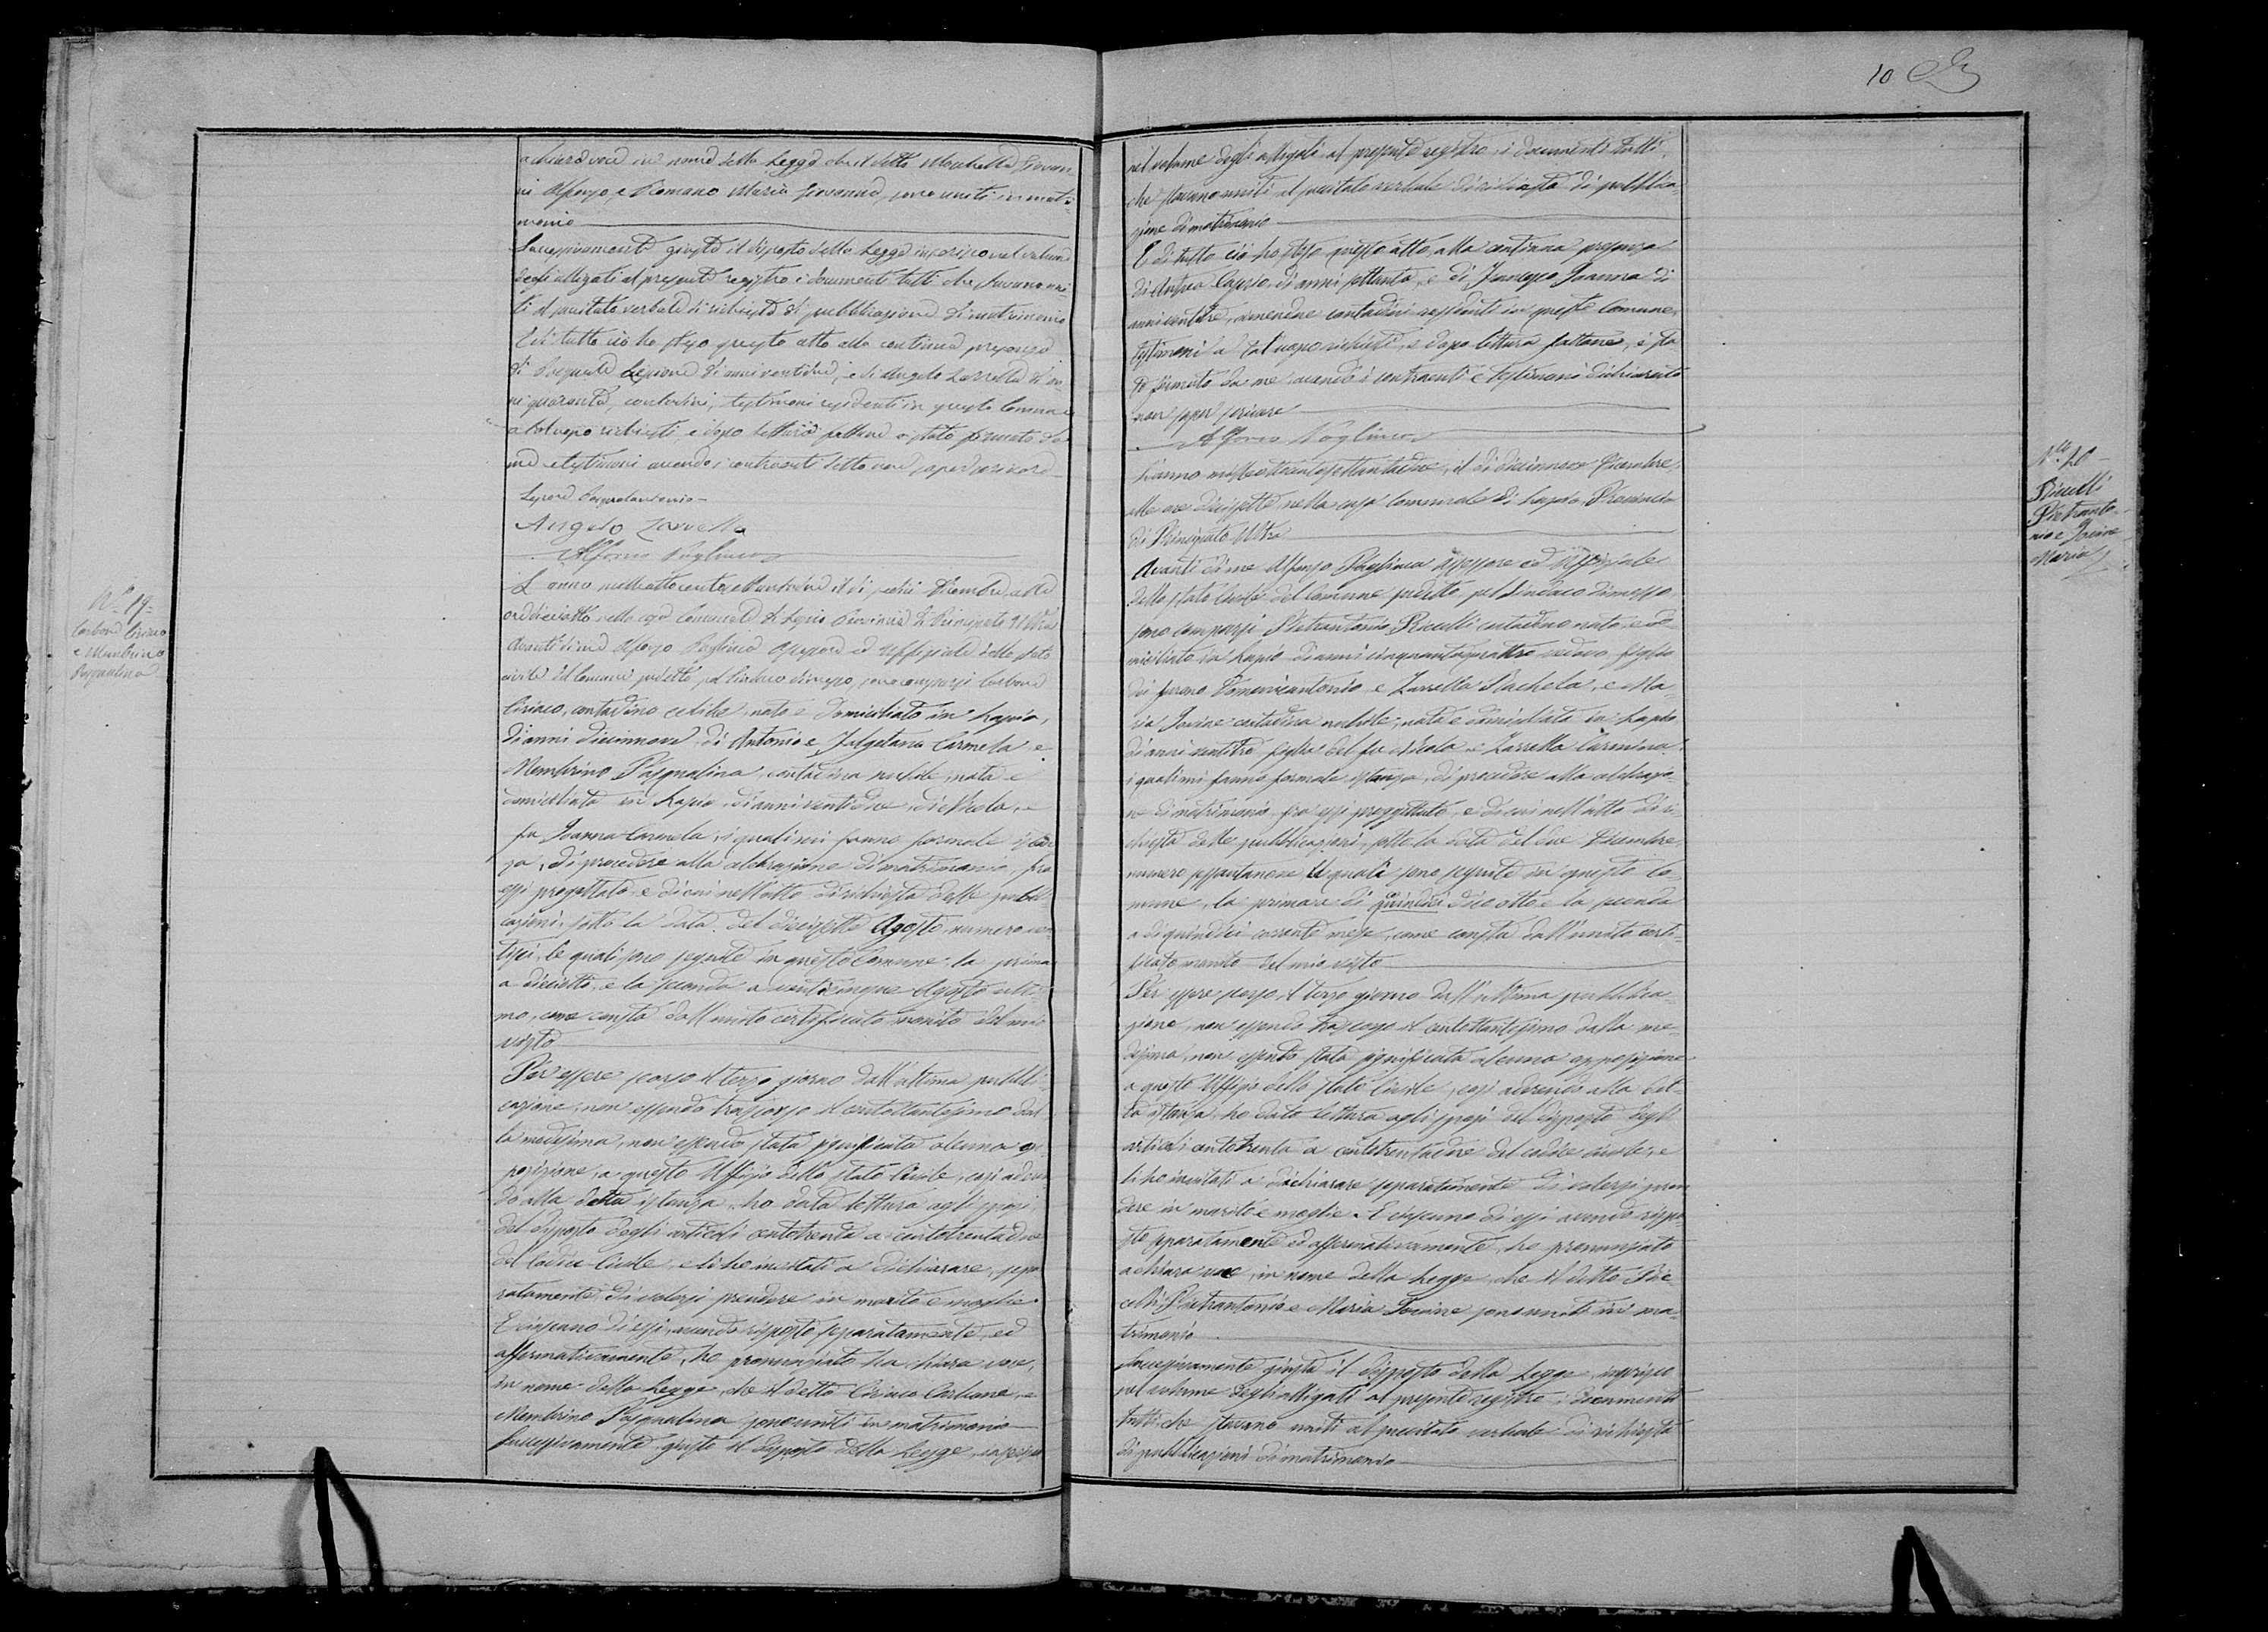 a chiara voce in nome della Legge che il detto Giovan
ni Alfonso e Romano Maria Giovanna sono uniti in matri
monio
Successivamente giusta il disposto della Legge inserisco nel volume
degli alligati al presente registro i documenti tutti che stavano uni
ti al precitato verbale di richiesta di pubblicazione di matrimonio
E di tutto ciò ho steso questo atto alla continua presenza
di anni ventidue, e di Angelo Zarrella di an
ni quaranta, contadini, testimoni residenti in questo Comune
a tal uopo richiesti e dopo lettura fattane è stato firmato da
me e testimoni avendo i contraenti detto non saper scrivere
Angelo Zarrella
Alfonso Pagliuca
N.º 19=
Carbone Ciriaco
e Membrino
Pasqualina
L'anno milleottocentosettantadue il dì sedici Dicembre alle
ore diciotto nella casa Comunale di Lapio Provincia di Principato Ultra
Avanti di me Alfonso Pagliuca Assessore ed uffiziale dello stato
civile del Comune predetto pel Sindaco dimesso, sono comparsi Carbone
Ciriaco, contadino celibe, nato e domiciliato in Lapio,
di anni diciannove di Antonio e Carmela e
Membrino Pasqualina, contadina nubile, nata e
domiciliata in Lapio, di anni ventidue, di Nicola, e
fu Ioanna Carmela, i quali mi fanno formale istan
za, di procedere alla celebrazione di matrimonio, fra
essi progettato e di cui nell'atto di richiesta delle pubbli
cazioni, sotto la data del diciasette Agosto numero ven
tisei, le quali sono seguite in questo Comune: la prima
a diciotto, e la seconda a venticinque Agosto ulti
mo, come consta dall'unito certificato munito del mio
visto
Per essere scorso il terzo giorno dall'ultima pubbli
cazione, non essendo trascorso il centottantesimo dal
la medesima, non essendo stata significata alcuna op
posizione, a questo Uffizio dello stato Civile, così aderen
do alla detta istanza, ho data lettura agli sposi,
del disposto degli articoli centotrenta a centotrentadue
del Codice Civile, e li ho invitati a dichiarare, sepa
ratamente di volersi prendere in marito e moglie.
E ciascuno di essi, avendo risposto separatamente, ed
affermativamente, ho pronunziato a chiara voce,
in nome della Legge, che il detto Ciriaco Carbone, e
Membrino Pasqualina sono uniti in matrimonio
Successivamente giusta il disposto della Legge, inserisco
10
nel volume degli alligati al presente registro, i documenti tutti,
che stavano uniti al precitato verbale di richiesta di pubblica
zione di matrimonio
E di tutto ciò ho steso questo atto, alla continua presenza
di Andrea Caruso, di anni settanta, e di Ioanna di
anni ventitre, amendue contadini residenti in questo Comune,
testimoni a tal uopo richiesti, e dopo lettura fattane, è sta
to firmato da me avendo i contraenti e testimoni dichiarato
non saper scrivere
Alfonso Pagliuca
N.º 20
Riccelli
Pietranto
nio e Iovine
Maria
L'anno milleottocentosettantadue, il dì diciannove Dicembre,
alle ore diciasette, nella casa Comunale di Lapio Provincia
di Principato Ultra
Avanti di me Alfonso Pagliuca Assessore ed Uffiziale
dello stato Civile del Comune predetto pel Sindaco dimesso,
sono comparsi Pietrantonio Riccelli contadino nato, e do
miciliato in Lapio di anni cinquantaquattro vedovo figlio
di furono Domenicantonio e Zarrella Rachela, e Ma
ria Iovine contadina nubile, nata e domiciliata in Lapio
di anni ventitre figlia del fu Nicola e Zarrella Carmina,
i quali mi fanno formale istanza, di procedere alla celebrazio
ne di matrimonio fra essi progettato, e di cui nell'atto di ri
chiesta delle pubblicazioni, sotto la data del due Dicembre
numero le quali sono seguite in questo Co
mune, la prima a dì quindici dice otto e la seconda
a dì quindici corrente mese, come consta dall'unito certi
ficato munito del mio visto
Per essere scorso il terzo giorno dall'ultima pubblica
zione, non essendo trascorso il centottantesimo dalla me
desima, non essendo stata significata alcuna opposizione
a questo Uffizio dello stato Civile, così aderendo alla det
ta istanza, ho data lettura agli sposi del disposto degli
articoli centotrenta a centotrentadue del codice civile, e
li ho invitati a dichiarare separatamente di volersi pren
dere in marito e moglie. E ciascuno di essi avendo rispo
sto separatamente ed affermativamente, ho pronunziato
a chiara voce, in nome della Legge, che il detto Ric
celli Pietrantonio e Maria Iovine sono uniti in ma
trimonio
Successivamente giusta il disposto della Legge, inserisco
nel volume degli alligati al presente registro, i documenti
tutti che stavano uniti al precitato verbale di richiesta
di pubblicazioni di matrimonio